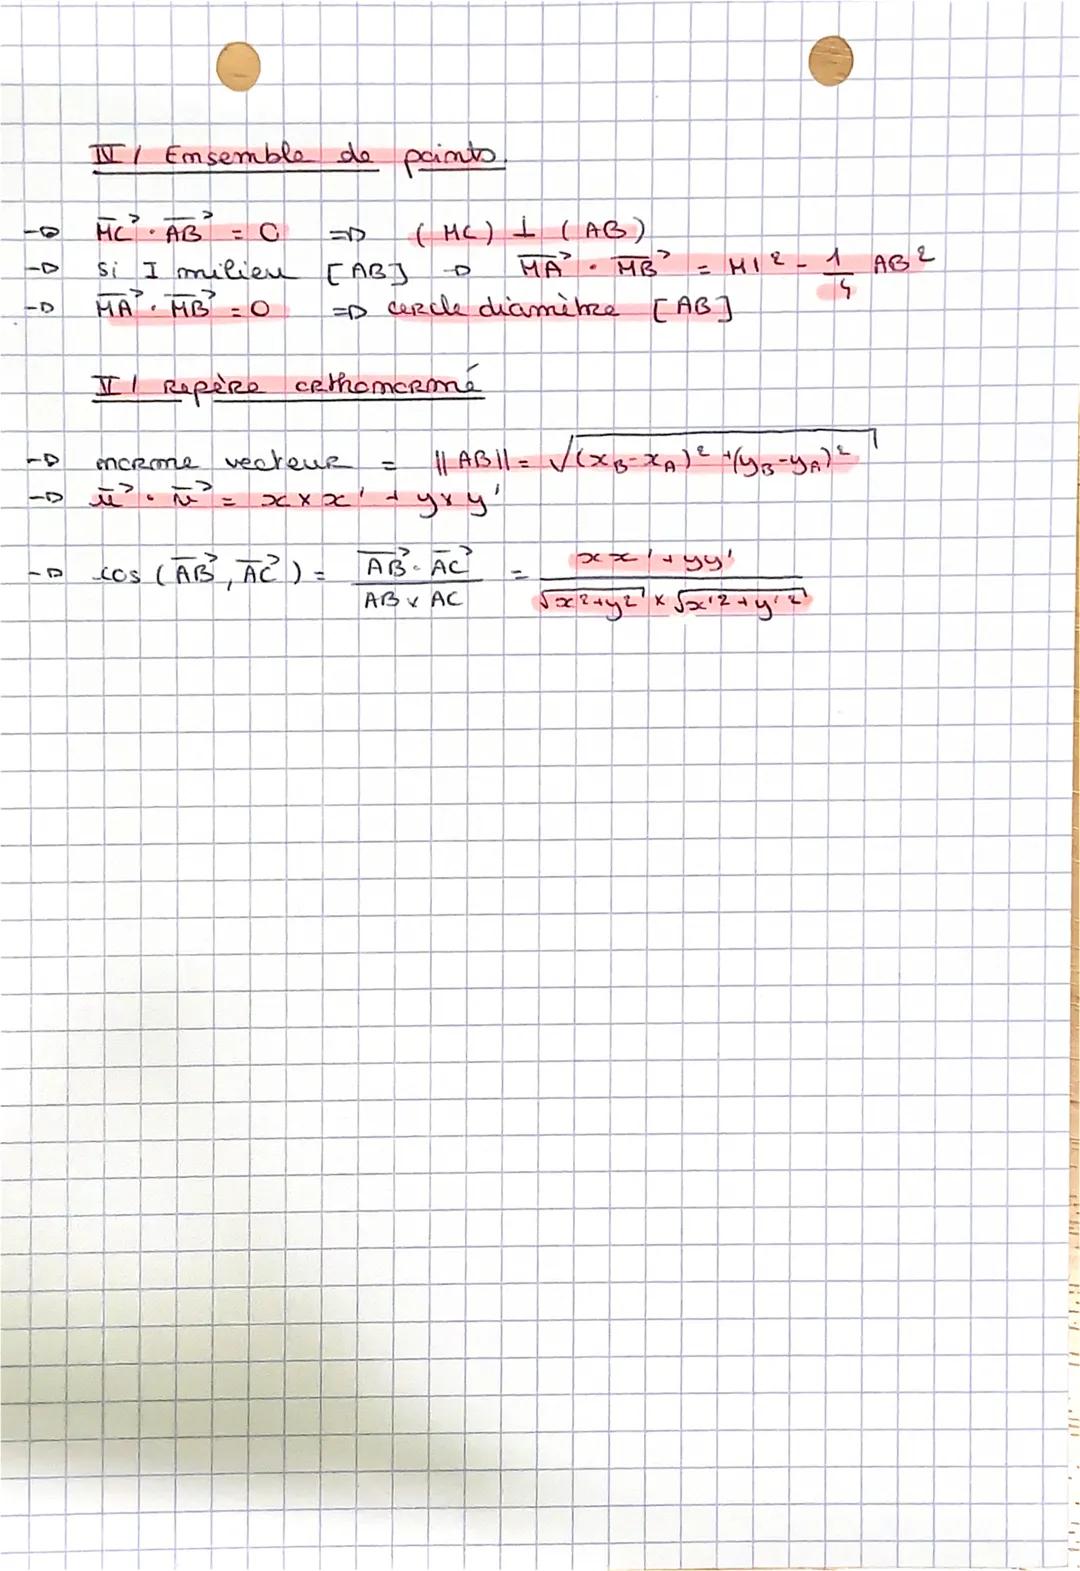 IV / Ensemble de points.
→ $\overrightarrow{MC} \cdot \overrightarrow{AB} = 0$ ⇒ (MC) ⊥ (AB)
→ si I milieu [AB] → $\overrightarrow{MA} \cdot \overrightarrow{MB} = MI^2 - \frac{1}{4} AB^2$
→ $\overrightarrow{MA} \cdot \overrightarrow{MB} = 0$ ⇒ cercle diamètre [AB]
V / Repère orthonormé
→ norme vecteur = $||AB|| = \sqrt{(x_B - x_A)^2 + (y_B - y_A)^2}$
→ $\vec{u} \cdot \vec{v} = x \times x' + y \times y'$
→ $\cos(\overrightarrow{AB}, \overrightarrow{AC}) = \frac{\overrightarrow{AB} \cdot \overrightarrow{AC}}{AB \times AC} = \frac{xx' + yy'}{\sqrt{x^2+y^2} \times \sqrt{x'^2+y'^2}}$